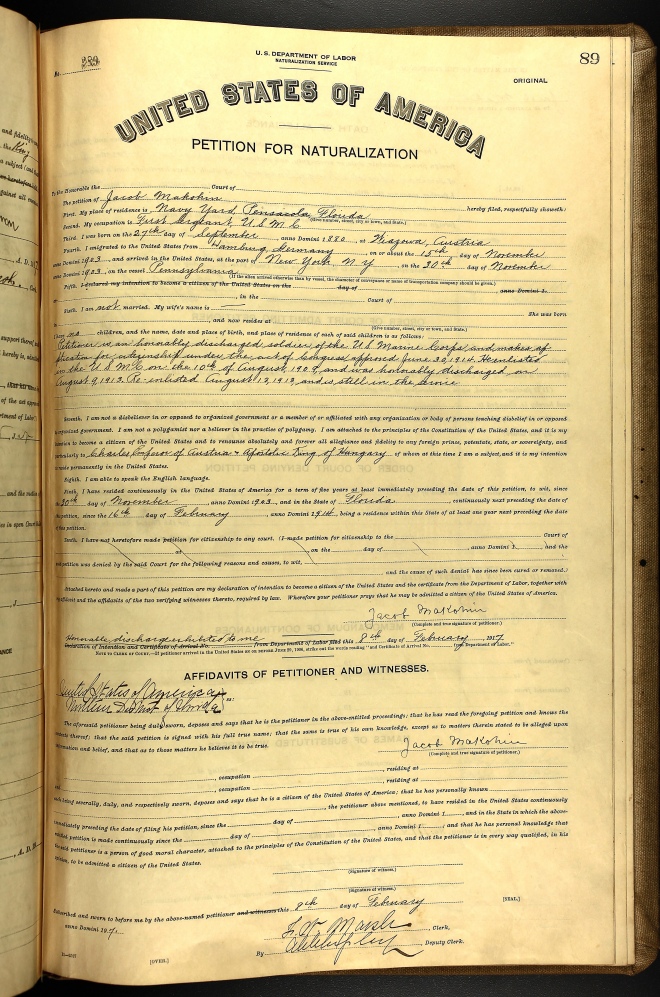 U. S. DEPARTMENT OF LABOR
NATURALIZATION SERVICE
No. 89
ORIGINAL
UNITED STATES OF AMERICA
PETITION FOR NATURALIZATION
To the Honorable the Court of
The petition of Jacob Makohin hereby filed, respectfully showeth:
First. My place of residence is Navy Yard Pensacola Florida
(Give number, street, city or town, and State.)
Second. My occupation is First Sergeant, U.S.M.C
Third. I was born on the 27th day of September, anno Domini 1880, at Austria
Fourth. I emigrated to the United States from Hamburg, Germany, on or about the 15th day of November
anno Domini 1903, and arrived in the United States, at the port of New York, N Y, on the 30th day of November
anno Domini 1903, on the vessel Pennsylvania
(If the alien arrived otherwise than by vessel, the character of conveyance or name of transportation company should be given.)
Fifth. I declared my intention to become a citizen of the United States on the day of anno Domini 1
, in the Court of
Sixth. I am not married. My wife's name is She was born
and now resides at
(Give number, street, city or town, and State.)
I have no children, and the name, date and place of birth, and place of residence of each of said children is as follows:
Petitioner is an honorably discharged soldier of the U.S. Marine Corps and makes ap-
plication for citizenship under the act of Congress approved June 30, 1914. He enlisted
in the U S M C on the 10th of August, 1909, and was honorably discharged on
August 9, 1913. Re-enlisted August 13, 1913, and is still in the service
Seventh. I am not a disbeliever in or opposed to organized government or a member of or affiliated with any organization or body of persons teaching disbelief in or opposed
to organized government. I am not a polygamist nor a believer in the practice of polygamy. I am attached to the principles of the Constitution of the United States, and it is my
intention to become a citizen of the United States and to renounce absolutely and forever all allegiance and fidelity to any foreign prince, potentate, state, or sovereignty, and
particularly to Charles Emperor of Austria & Apostolic King of Hungary, of whom at this time I am a subject, and it is my intention
to reside permanently in the United States.
Eighth. I am able to speak the English language.
Ninth. I have resided continuously in the United States of America for a term of five years at least immediately preceding the date of this petition, to wit, since
the 30th day of November, anno Domini 1903, and in the State of Florida, continuously next preceding the date of
this petition, since the 16th day of February, anno Domini 1914, being a residence within this State of at least one year next preceding the date
of this petition.
Tenth. I have not heretofore made petition for citizenship to any court. (I made petition for citizenship to the Court of
at , on the day of , anno Domini 1 , and the
said petition was denied by the said Court for the following reasons and causes, to wit,
and the cause of such denial has since been cured or removed.)
Attached hereto and made a part of this petition are my declaration of intention to become a citizen of the United States and the certificate from the Department of Labor, together with
my affidavit and the affidavits of the two verifying witnesses thereto, required by law. Wherefore your petitioner prays that he may be admitted a citizen of the United States of America.
Jacob Makohin
(Complete and true signature of petitioner.)
Honorable discharge exhibited to me
Declaration of Intention and Certificate of Arrival No. from Department of Labor filed this 8th day of February, 1917
NOTE TO CLERK OF COURT.—If petitioner arrived in the United States on or before June 29, 1906, strike out the words reading "and Certificate of Arrival No. from Department of Labor."
AFFIDAVITS OF PETITIONER AND WITNESSES.
United States of America
Northern District of Florida ss:
The aforesaid petitioner being duly sworn, deposes and says that he is the petitioner in the above-entitled proceedings; that he has read the foregoing petition and knows the
contents thereof; that the said petition is signed with his full true name; that the same is true of his own knowledge, except as to matters therein stated to be alleged upon
information and belief, and that as to those matters he believes it to be true.
Jacob Makohin
(Complete and true signature of petitioner.)
, occupation , residing at
and , occupation , residing at
each being severally, duly, and respectively sworn, deposes and says that he is a citizen of the United States of America; that he has personally known
, the petitioner above mentioned, to have resided in the United States continuously
immediately preceding the date of filing his petition, since the day of , anno Domini 1 , and in the State in which the above-
entitled petition is made continuously since the day of , anno Domini 1 , and that he has personal knowledge that
the said petitioner is a person of good moral character, attached to the principles of the Constitution of the United States, and that the petitioner is in every way qualified, in his
opinion, to be admitted a citizen of the United States.
(Signature of witness.)
(Signature of witness.)
Subscribed and sworn to before me by the above-named petitioner and witnesses this 8th day of February [SEAL.]
anno Domini 191
F. W. Marsh, Clerk.
By Deputy Clerk.
[OVER.]